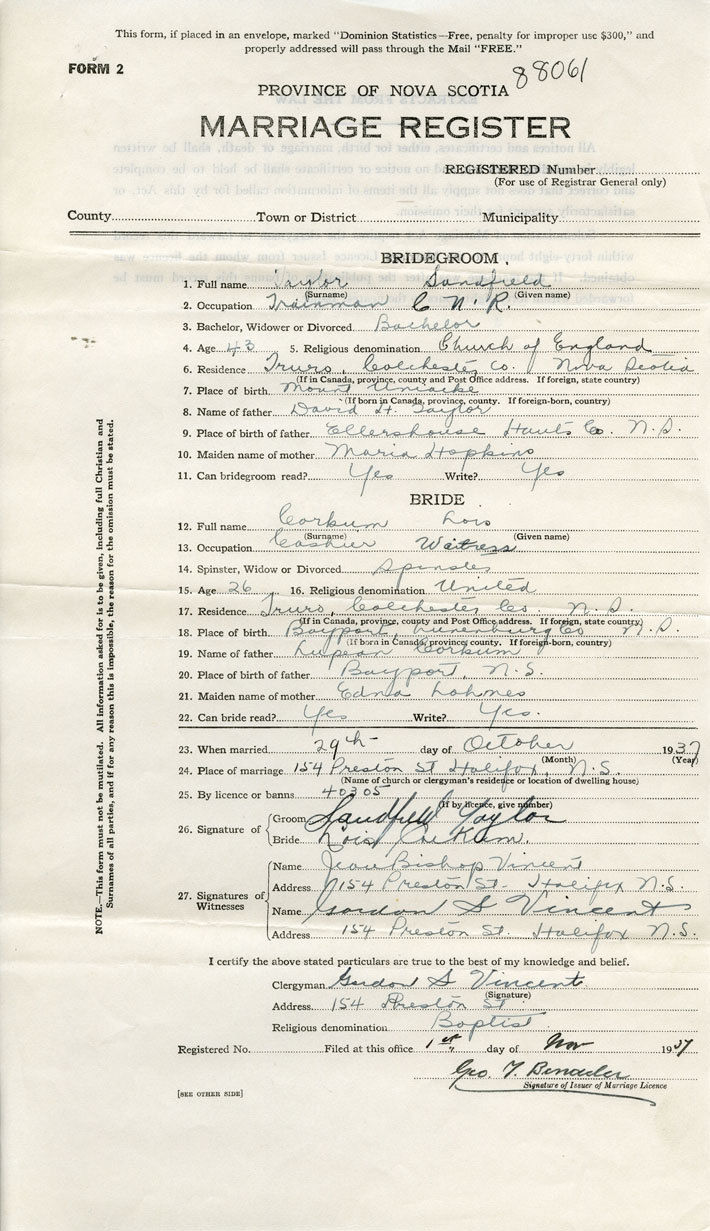 This form, if placed in an envelope, marked "Dominion Statistics—Free, penalty for improper use $300," and
properly addressed will pass through the Mail "FREE."
FORM 2
88061
PROVINCE OF NOVA SCOTIA
MARRIAGE REGISTER
REGISTERED Number
(For use of Registrar General only)
County Town or District Municipality
BRIDEGROOM
1. Full name Taylor Sandfield
(Surname) (Given name)
2. Occupation Trainman C. N. R.
3. Bachelor, Widower or Divorced Bachelor
4. Age 43 5. Religious denomination Church of England
6. Residence Truro, Colchester Co. Nova Scotia
(If in Canada, province, county and Post Office address. If foreign, state country)
7. Place of birth Mount Uniacke
(If born in Canada, province, county. If foreign-born, country)
8. Name of father David H. Taylor
9. Place of birth of father Ellershouse Hants Co. N.S.
10. Maiden name of mother Maria Hopkins
11. Can bridegroom read? Yes Write? Yes
BRIDE
12. Full name Corkum Lois
(Surname) (Given name)
13. Occupation Cashier Waitress
14. Spinster, Widow or Divorced Spinster
15. Age 26 16. Religious denomination United
17. Residence Truro, Colchester Co. N.S.
(If in Canada, province, county and Post Office address. If foreign, state country)
18. Place of birth Bayport, Lunenburg Co N.S.
(If born in Canada, province, county. If foreign-born, country)
19. Name of father Corkum
20. Place of birth of father Bayport, N.S.
21. Maiden name of mother Edna Lohnes
22. Can bride read? Yes Write? Yes.
23. When married 29th day of October 1937
(Month) (Year)
24. Place of marriage 154 Preston St Halifax, N.S.
(Name of church or clergyman's residence or location of dwelling house)
25. By licence or banns 40305
(If by licence, give number)
26. Signature of { Groom Sandfield Taylor
Bride Lois Corkum.
27. Signatures of Witnesses { Name Jean Bishop Vincent
Address 154 Preston St. Halifax N.S.
Name Gordon S Vincent
Address 154 Preston St. Halifax N.S.
I certify the above stated particulars are true to the best of my knowledge and belief.
Clergyman Gordon S Vincent
(Signature)
Address 154 Preston St.
Religious denomination Baptist
Registered No. Filed at this office 1st day of Nov 1937
Geo. T.
Signature of Issuer of Marriage Licence
[SEE OTHER SIDE]
NOTE.—This form must not be mutilated. All information asked for is to be given, including full Christian and
Surnames of all parties, and if for any reason this is impossible, the reason for the omission must be stated.